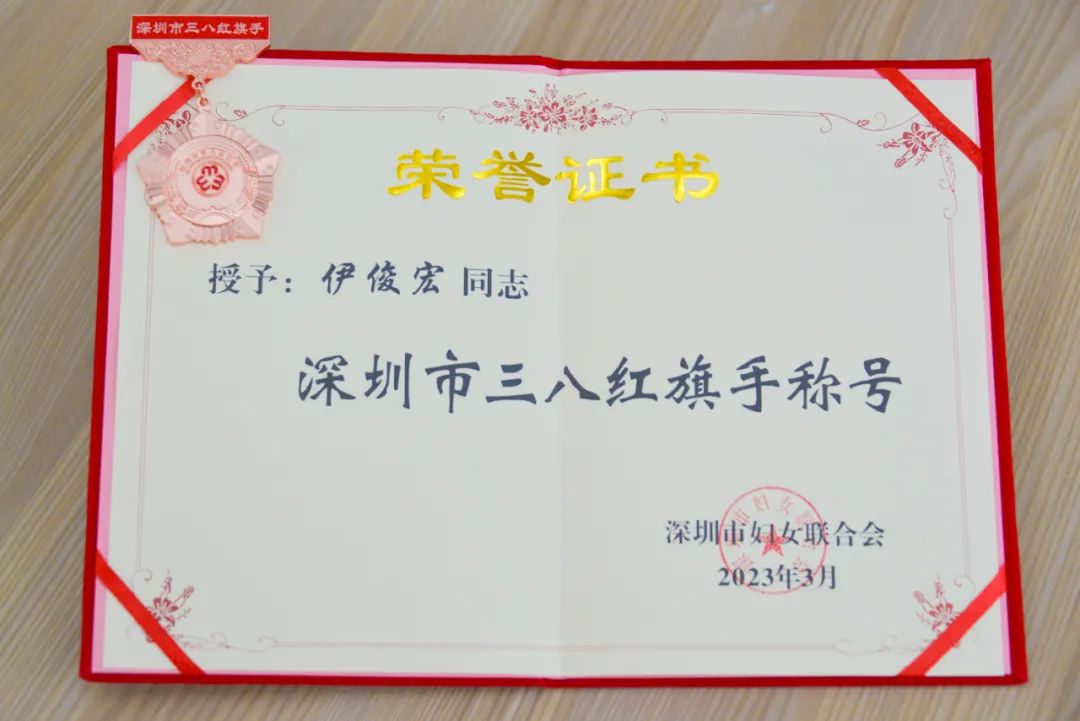 深圳市三八红旗手
荣誉证书
授予：伊俊宏 同志
深圳市三八红旗手称号
深圳市妇女联合会
2023年3月